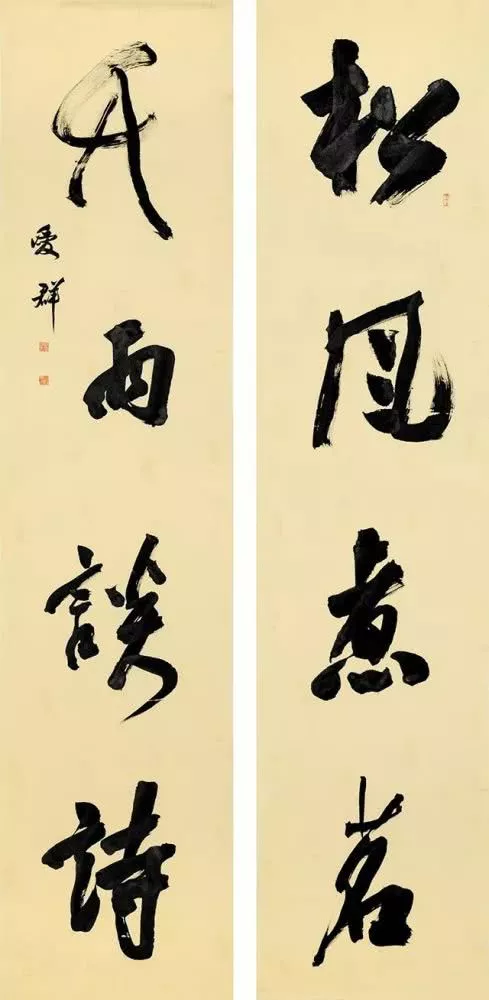 松風煮茗
竹雨談詩
愛群